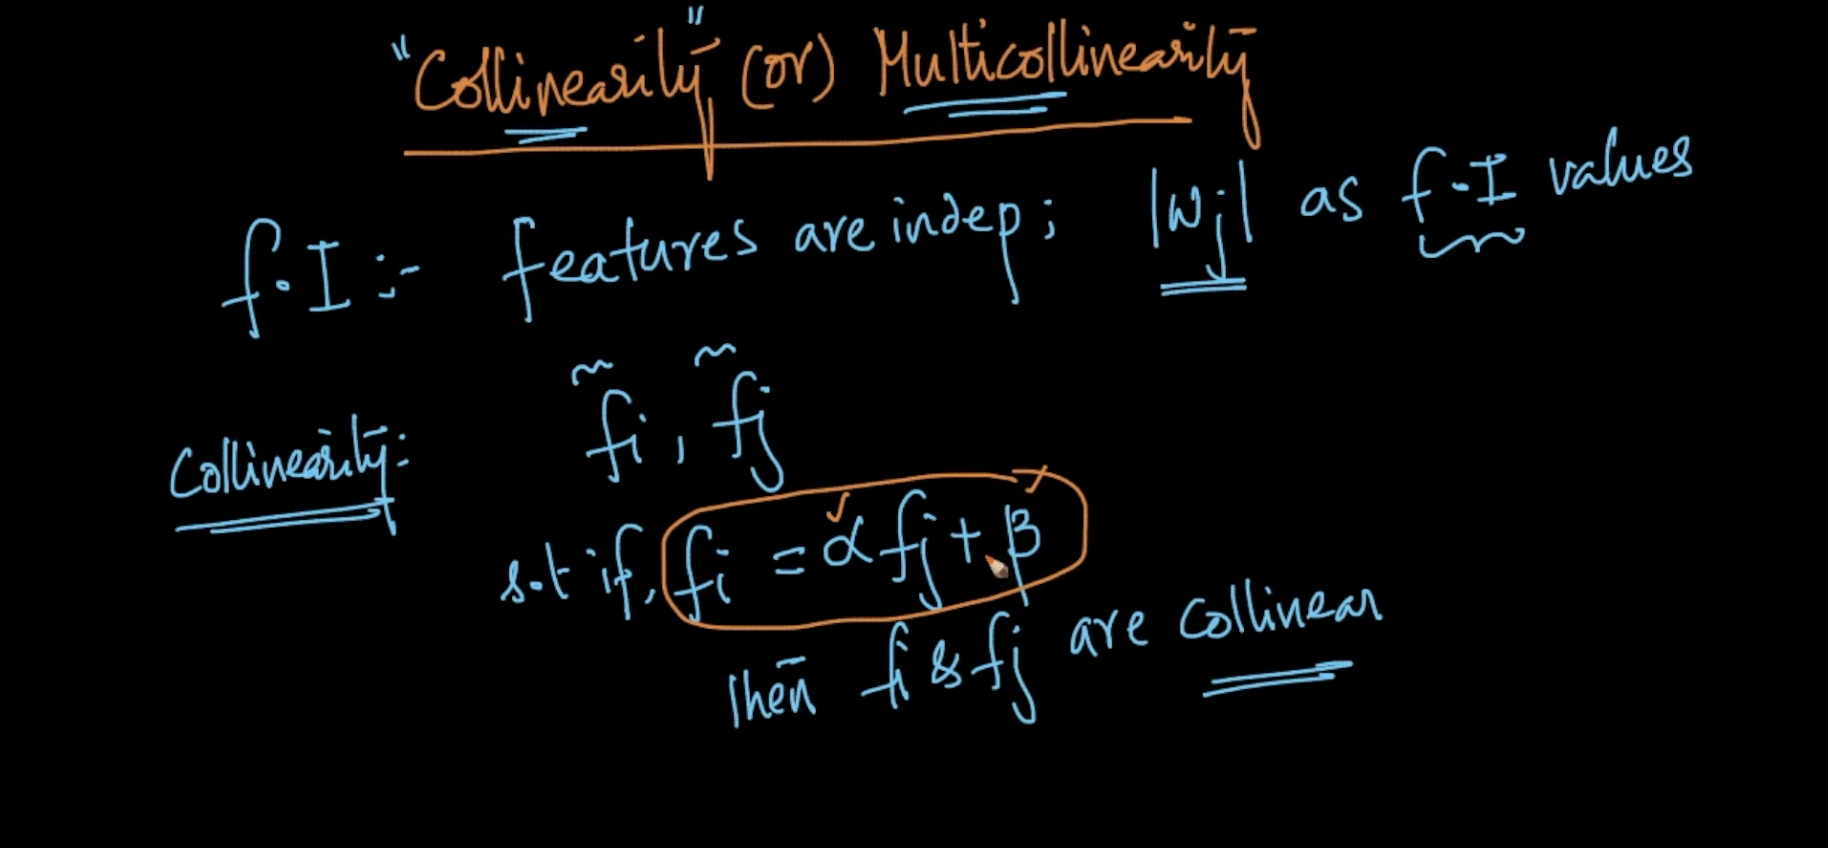 "Collinearity" (or) Multicollinearity
f.I :- features are indep; |wj| as f.I values
Collinearity: fi, fj
s.t if, fi = αfj + β
then fi & fj are collinear